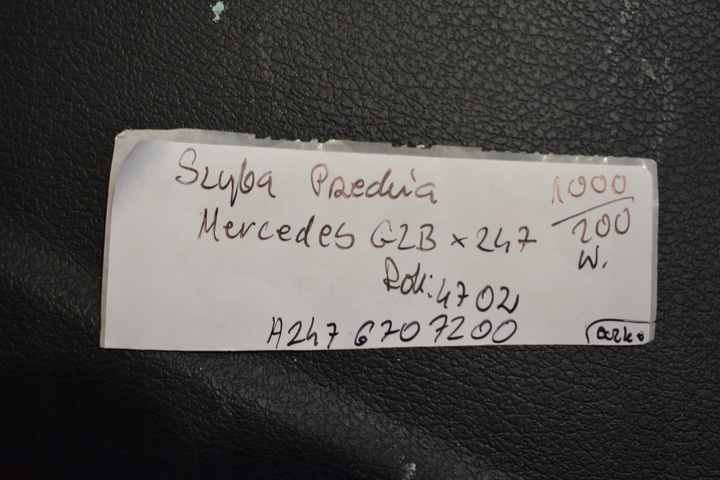 Szyba Przednia
1000
Mercedes GLB x247
200
W.
Rok: 4702
A247 670 7200